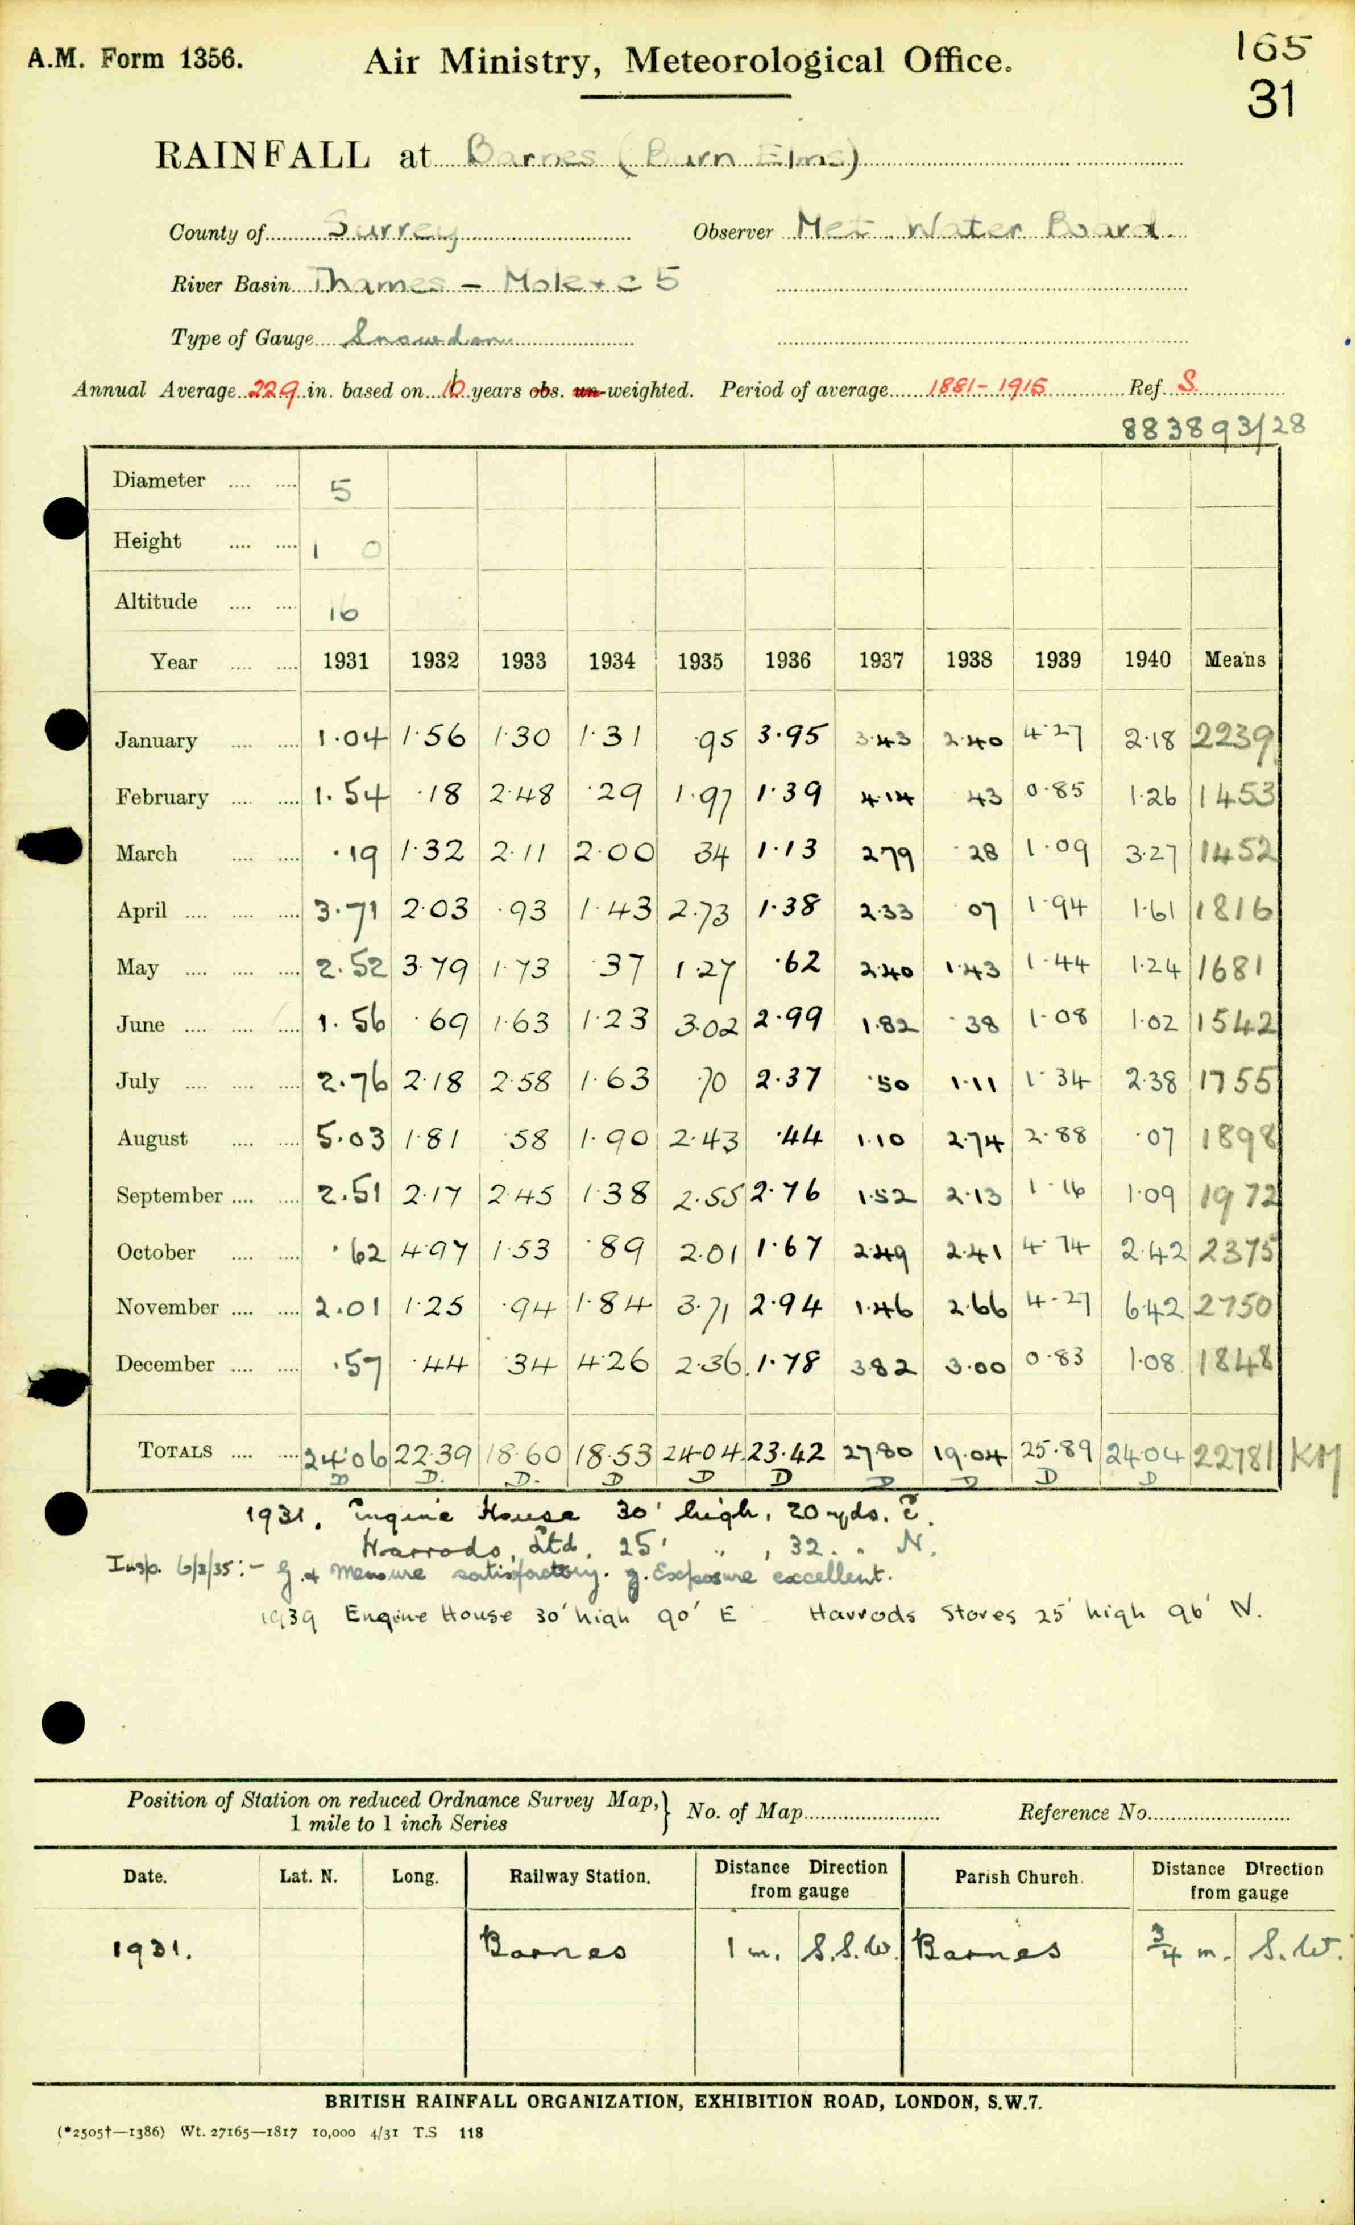 A.M. Form 1356. Air Ministry, Meteorological Office. 165
31
RAINFALL at Barnes (Barn Elms)
County of Surrey Observer Met Water Board.
River Basin Thames - Mole &c 5
Type of Gauge Snowdon
Annual Average 22.9 in. based on 10 years obs. un-weighted. Period of average 1881-1915 Ref. S.
883893/28
Diameter .... .... 5
Height .... .... 1 0
Altitude .... .... 16
Year .... .... 1931 1932 1933 1934 1935 1936 1937 1938 1939 1940 Means
January .... .... 1.04 1.56 1.30 1.31 .95 3.95 3.43 2.40 4.27 2.18 2239
February .... .... 1.54 .18 2.48 .29 1.97 1.39 4.14 43 0.85 1.26 1453
March .... .... .19 1.32 2.11 2.00 34 1.13 2.79 .28 1.09 3.27 1452
April .... .... .... 3.71 2.03 .93 1.43 2.73 1.38 2.33 07 1.94 1.61 1816
May .... .... .... 2.52 3.79 1.73 .37 1.27 .62 2.40 1.43 1.44 1.24 1681
June .... .... .... 1.56 .69 1.63 1.23 3.02 2.99 1.82 .38 1.08 1.02 1542
July .... .... .... 2.76 2.18 2.58 1.63 .70 2.37 .50 1.11 1.34 2.38 1755
August .... .... 5.03 1.81 .58 1.90 2.43 .44 1.10 2.74 2.88 .07 1898
September .... .... 2.51 2.17 2.45 1.38 2.55 2.76 1.52 2.13 1.16 1.09 1972
October .... .... .62 4.97 1.53 .89 2.01 1.67 2.49 2.41 4.74 2.42 2375
November .... .... 2.01 1.25 .94 1.84 3.71 2.94 1.46 2.66 4.27 6.42 2750
December .... .... .57 .44 .34 4.26 2.36 1.78 3.82 3.00 0.83 1.08 1848
TOTALS .... .... 24.06 22.39 18.60 18.53 24.04 23.42 27.80 19.04 25.89 24.04 22781 KM
D D. D. D D D D D D D
1931. Engine House 30' high, 20 yds. E.
Harrods, Ltd. 25' " , 32. " N.
Insp. 6/2/35:- g. & measure satisfactory. g. Exposure excellent.
1939 Engine House 30' high 90' E Harrods Stores 25' high 96' N.
Position of Station on reduced Ordnance Survey Map,} No. of Map Reference No.
1 mile to 1 inch Series
Date. Lat. N. Long. Railway Station. Distance Direction from gauge Parish Church. Distance Direction from gauge
1931. Barnes 1 m. S.S.W. Barnes 3/4 m. S.W.
BRITISH RAINFALL ORGANIZATION, EXHIBITION ROAD, LONDON, S.W.7.
(*2505†—1386) Wt. 27165—1817 10,000 4/31 T.S 118